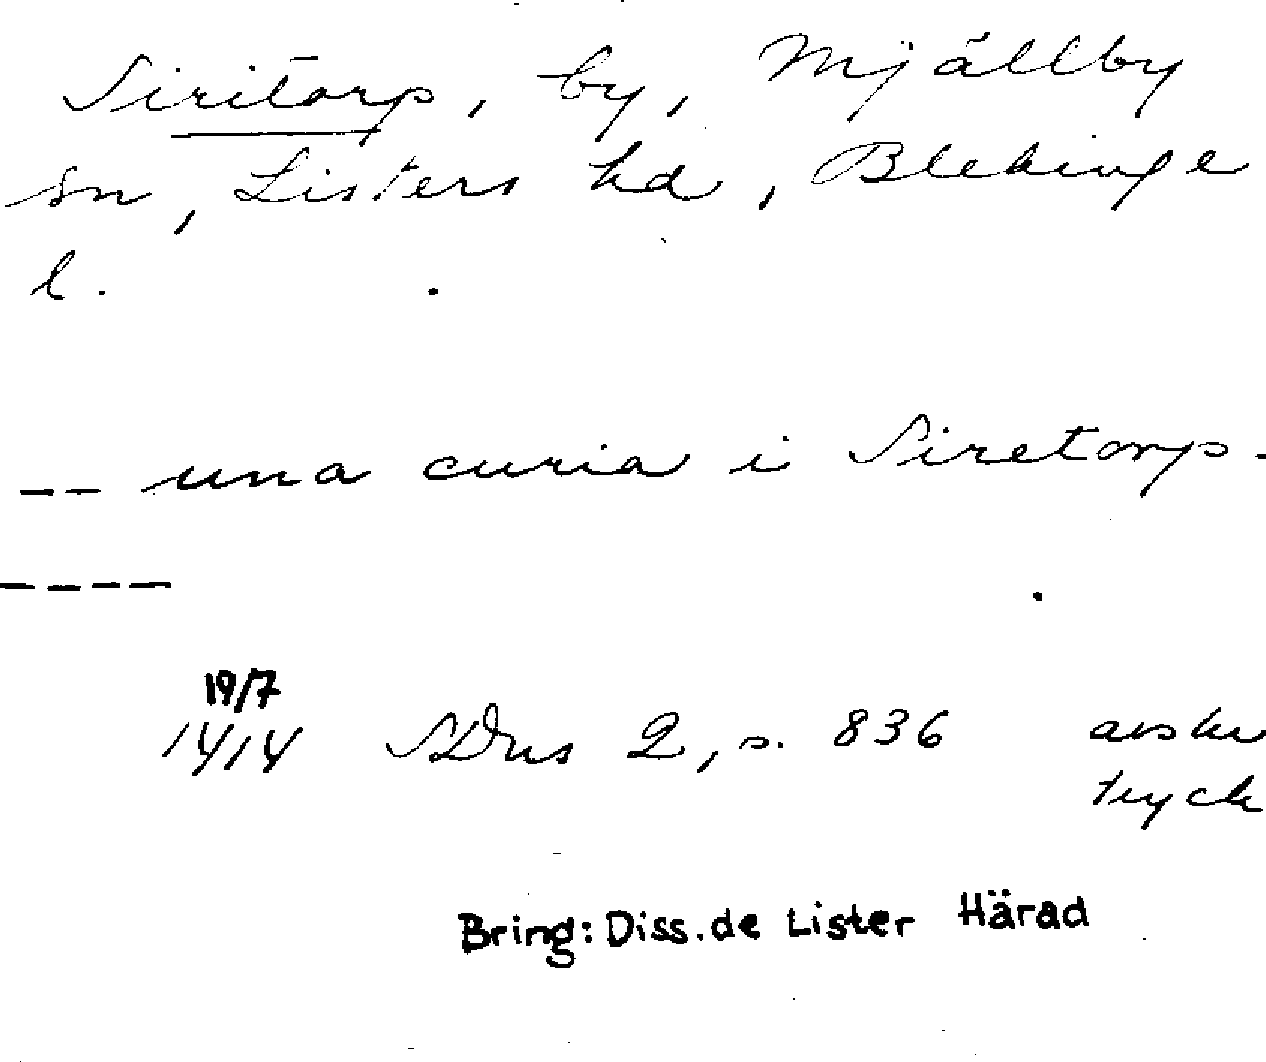 Siritorp, by, Mjällby
sn, Listers hd, Blekinge
l.
-- una curia i Siretorp.
----
19/7
1414 SDns 2, s. 836 avskr
tryck
Bring: Diss. de Lister Härad